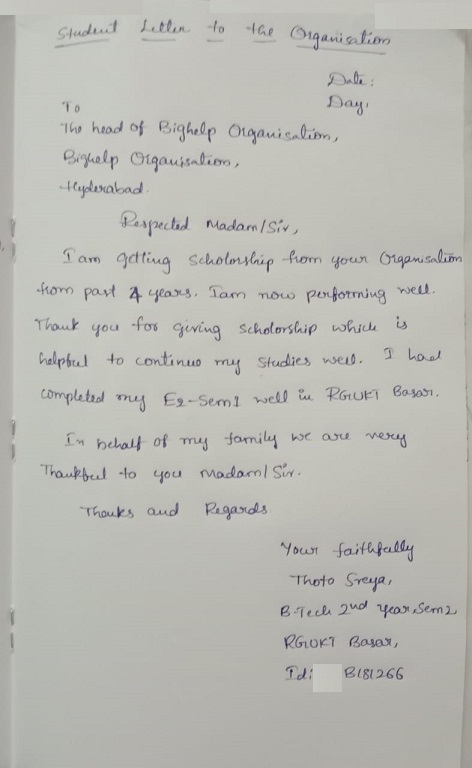 Student Letter to the Organisation
Date:
Day,
To
The head of Bighelp Organisation,
Bighelp Organisation,
Hyderabad.
Respected Madam/Sir,
I am getting Scholorship from your Organisation
from past 4 years. I am now performing well.
Thank you for giving scholorship which is
helpful to continue my studies well. I had
completed my E2-Sem1 well in RGUKT Basar.
In behalf of my family we are very
Thankful to you Madam/Sir.
Thanks and Regards
Your faithfully
Thoto Sreya,
B.Tech 2nd year, Sem2
RGUKT Basar,
Id: B181266